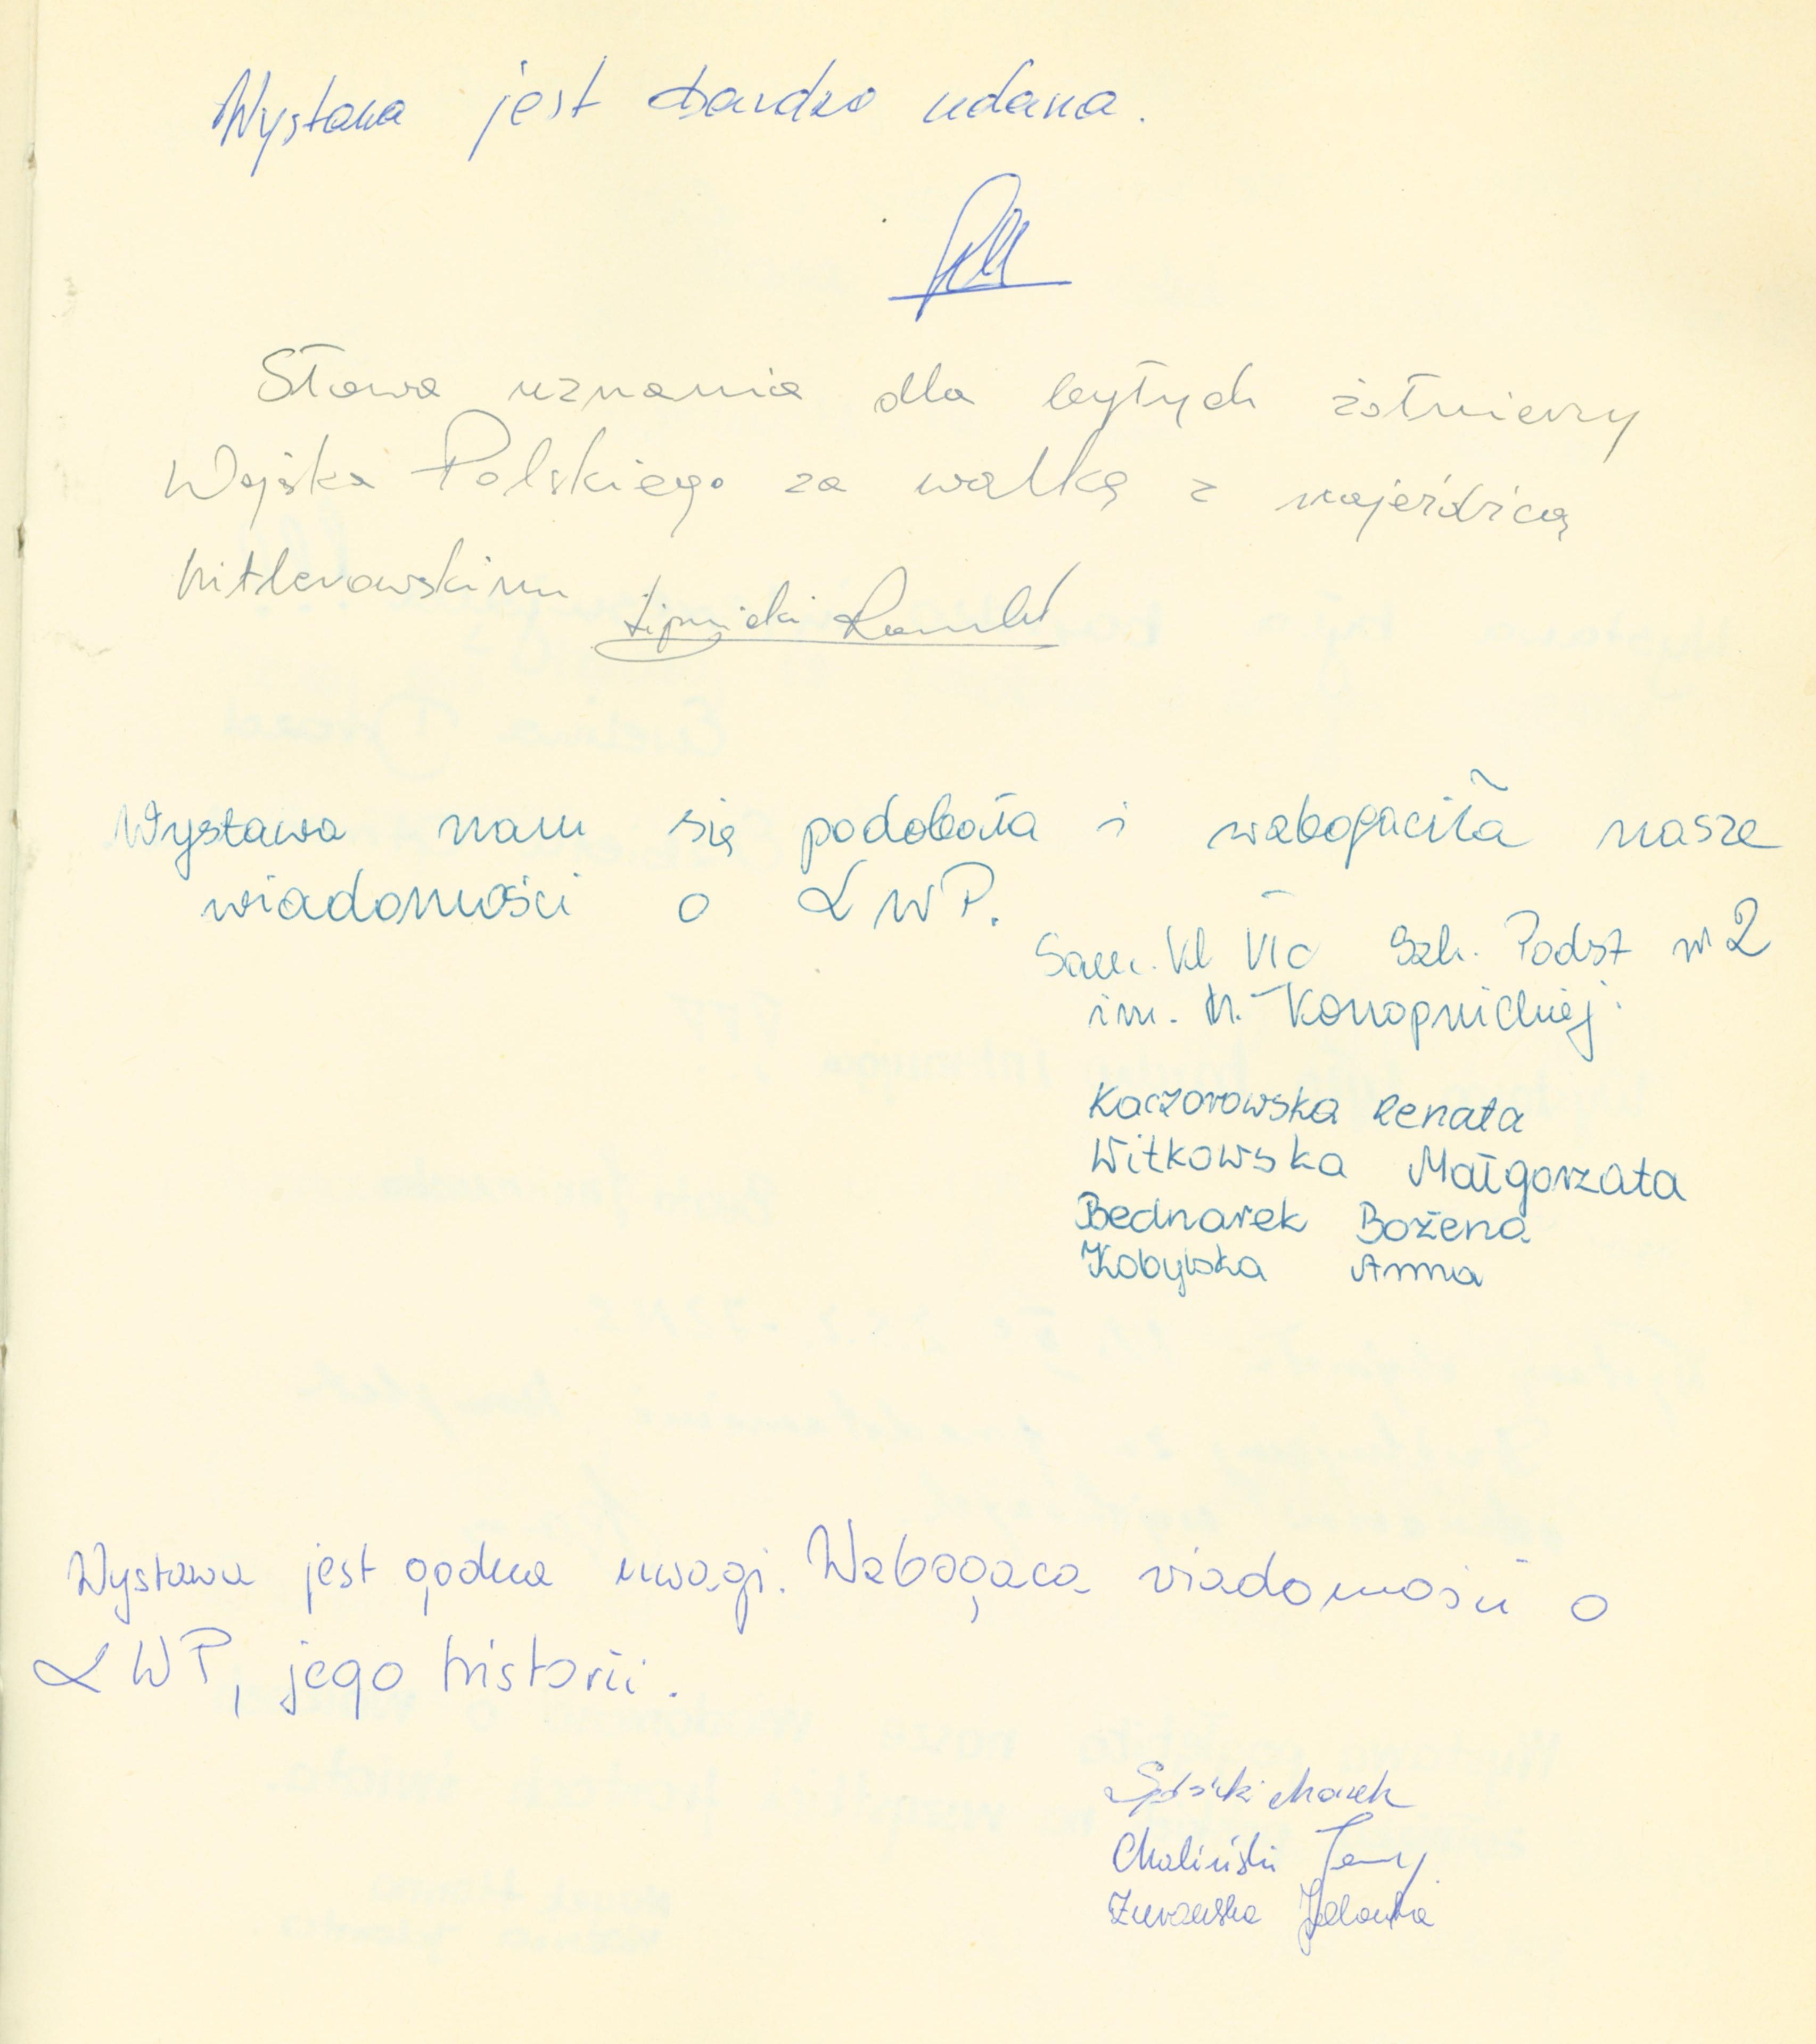 Wystawa jest bardzo udana.
Słowa uznania dla byłych żołnierzy
Wojska Polskiego za walkę z najeźdźcą
hitlerowskim Lipnicki
Wystawa nam się podobała i wzbogaciła nasze
wiadomości o LWP.
Sam. Kl VIc Szk. Podst nr 2
im. M. Konopnickiej.
Kaczorowska Renata
Witkowska Małgorzata
Bednarek Bożena
Kobylska Anna
Wystawa jest godna uwagi. Wzbogaca wiadomości o
LWP, jego historii.
Marek
Chaliński Jerzy
Żurawska Jolanta